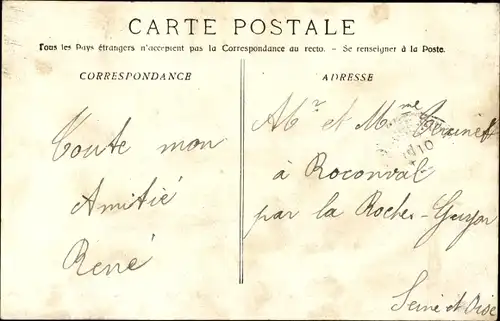 CARTE POSTALE
Tous les Pays étrangers n'acceptent pas la Correspondance au recto. - Se renseigner à la Poste.
CORRESPONDANCE
Toute mon
Amitié
René
ADRESSE
Mr et Mme
à Roconval
par la Roche-Guyon
Seine et Oise
10